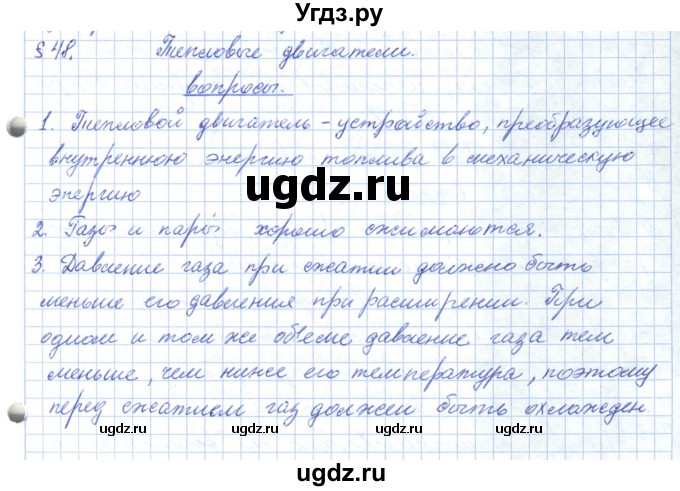 Угдз.ру
§ 48. Тепловые двигатели.
вопросы.
1. Тепловой двигатель - устройство, преобразующее
внутреннюю энергию топлива в механическую
энергию
ugdz.ru
2. Газы и пары хорошо сжимаются.
3. Давление газа при сжатии должно быть
меньше его давления при расширении. При
одном и том же объеме давление газа тем
меньше, чем ниже его температура, поэтому
перед сжатием газ должен быть охлажден.
ugdz.ru ugdz.ru ugdz.ru
ugdz.ru